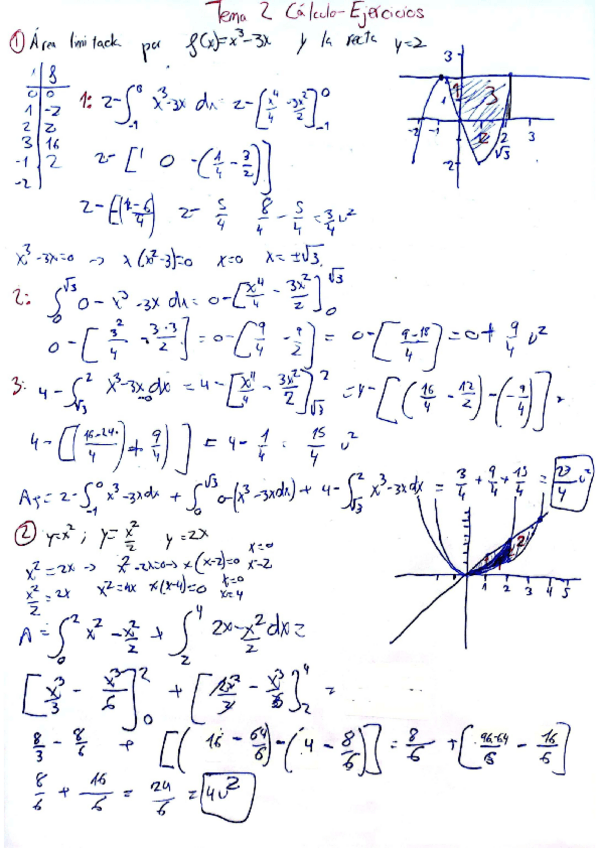 Tema 2 Cálculo-Ejercicios
① Área limitada por f(x)=x³-3x y la recta y=2
f
0 0
1 -2
2 2
3 16
-1 2
-2
1: 2-∫₋₁⁰ x³-3x dx = 2-[x⁴/4 - 3x²/2]₋₁⁰
2-[ 0 -(1/4 - 3/2)]
2-[-(1-6/4) 2- 5/4 8/4 - 5/4 = 3/4 u²
3
1
1 3
2
-2 -1 1 2 √3 3
-2
x³-3x=0 → x(x²-3)=0 x=0 x=±√3
2: ∫₀^√3 0-x³-3x dx = 0-[x⁴/4 - 3x²/2]₀^√3
0-[3²/4 - 3·3/2] = 0-[9/4 - 9/2] = 0-[9-18/4] = 0+ 9/4 u²
3: 4-∫_√3² x³-3x dx = 4-[x⁴/4 - 3x²/2]_√3² = 4-[(16/4 - 12/2)-(-9/4)] =
4-[(16-24/4)+ 9/4)] = 4- 1/4 = 15/4 u²
= 2-∫₋₁⁰ x³-3x dx + ∫₀^√3 0-(x³-3x dx) + 4-∫_√3² x³-3x dx = 3/4 + 9/4 + 15/4 = 27/4 u²
② y=x² ; y= x²/2 y=2x
x²=2x → x²-2x=0 → x(x-2)=0 x=0 x=2
x²/2=2x x²=4x x(x-4)=0 x=0 x=4
1 2
1 2 3 4 5
A=∫₀² x² - x²/2 + ∫₂⁴ 2x - x²/2 dx =
[x³/3 - x³/6]₀² + [2x²/2 - x³/6]₂⁴ =
8/3 - 8/6 + [(16 - 64/6)-(4 - 8/6)] = 8/6 + [96-64/6 - 16/6]
8/6 + 16/6 = 24/6 = 4u²